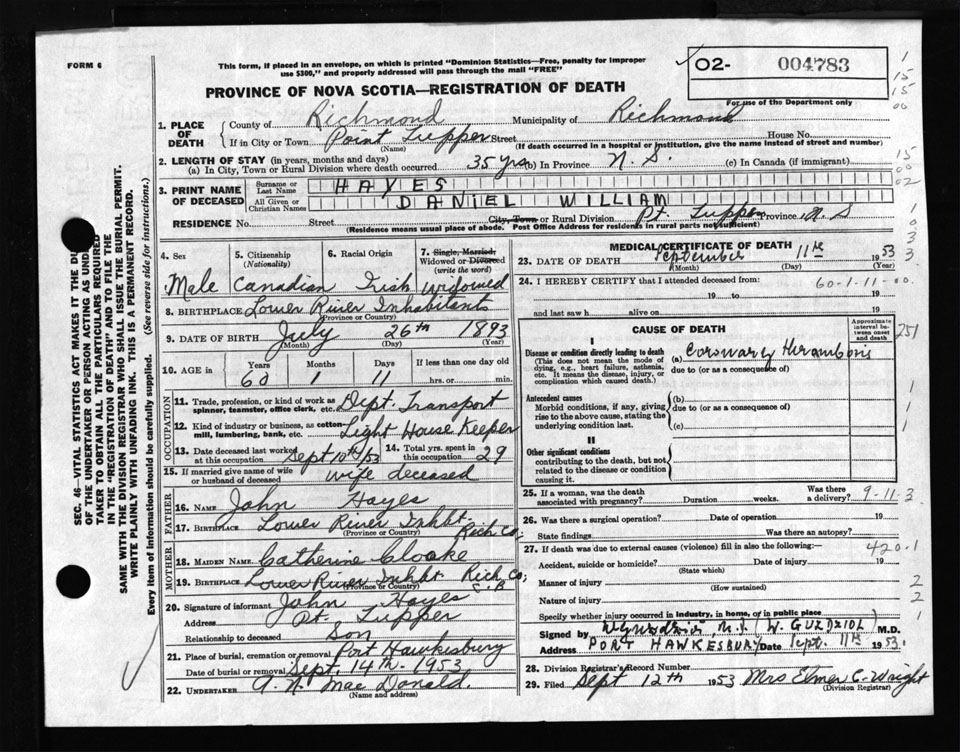 FORM 6
This form, if placed in an envelope, on which is printed "Dominion Statistics—Free, penalty for improper
use $300," and properly addressed will pass through the mail "FREE"
O2- 004783
For use of the Department only
PROVINCE OF NOVA SCOTIA—REGISTRATION OF DEATH
1. PLACE OF DEATH
County of Richmond Municipality of Richmond
If in City or Town Point Tupper Street House No.
(Name) (If death occurred in a hospital or institution, give the name instead of street and number)
2. LENGTH OF STAY (in years, months and days)
(a) In City, Town or Rural Division where death occurred 35 yrs (b) in Province N. S. (c) In Canada (if immigrant)
3. PRINT NAME OF DECEASED
Surname or Last Name HAYES
All Given or Christian Names DANIEL WILLIAM
RESIDENCE No. Street City, Town or Rural Division Pt. Tupper Province N. S
(Residence means usual place of abode. Post Office Address for residents in rural parts not sufficient)
4. Sex Male
5. Citizenship (Nationality) Canadian
6. Racial Origin Irish
7. Single, Married, Widowed or Divorced (write the word) Widowed
8. BIRTHPLACE Lower River Inhabitants
(Province or Country)
9. DATE OF BIRTH July 26th 1893
(Month) (Day) (Year)
10. AGE in Years 60 Months 1 Days 11 If less than one day old
hrs. or min.
OCCUPATION
11. Trade, profession, or kind of work as spinner, teamster, office clerk, etc. Dept. Transport
12. Kind of industry or business, as cotton mill, lumbering, bank, etc. Light House Keeper
13. Date deceased last worked at this occupation Sept 10th/53
14. Total yrs. spent in this occupation 29
15. If married give name of wife or husband of deceased wife deceased
FATHER
16. Name John Hayes
17. Birthplace Lower River Inhbt. Rich Co.
(Province or Country)
MOTHER
18. MAIDEN NAME Catherine Cloake
19. BIRTHPLACE Lower River Inhbt. Rich Co; C. B
(Province or Country)
20. Signature of informant John Hayes
Address Pt. Tupper
Relationship to deceased Son
21. Place of burial, cremation or removal Port Hawkesbury
Date of burial or removal Sept. 14th. 1953
22. UNDERTAKER A. N. Mac Donald.
(Name and address)
MEDICAL CERTIFICATE OF DEATH
23. DATE OF DEATH September 11th 1953
(Month) (Day) (Year)
24. I HEREBY CERTIFY that I attended deceased from 60-1-11-00.
19 to 19
and last saw h alive on 19
CAUSE OF DEATH
Approximate interval between onset and death
I
Disease or condition directly leading to death (a) Coronary thrombosis
(This does not mean the mode of dying, e.g., heart failure, asthenia, etc. It means the disease, injury, or complication which caused death.)
due to (or as a consequence of)
Antecedent causes
Morbid conditions, if any, giving rise to the above cause, stating the underlying condition last.
(b)
due to (or as a consequence of)
(c)
II
Other significant conditions
contributing to the death, but not related to the disease or condition causing it.
25. If a woman, was the death associated with pregnancy? Duration weeks. Was there a delivery? 9-11-3
26. Was there a surgical operation? Date of operation 19
State findings Was there an autopsy?
27. If death was due to external causes (violence) fill in also the following:— 420.1
Accident, suicide or homicide? Date of injury 19
(State which)
Manner of injury
(How sustained)
Nature of injury
Specify whether injury occurred in industry, in home, or in public place
Signed by (W. GUZDZIOL) M.D.
Address PORT HAWKESBURY Date Sept. 11th 1953.
28. Division Registrar's Record Number
29. Filed Sept 12th 1953 Mrs Elmer C. Wright
(Division Registrar)
SEC. 46—VITAL STATISTICS ACT MAKES IT THE DU
OF THE UNDERTAKER OR PERSON ACTING AS UND
TAKER TO OBTAIN ALL THE PARTICULARS REQUIRED
IN THE "REGISTRATION OF DEATH" AND TO FILE THE
SAME WITH THE DIVISION REGISTRAR WHO SHALL ISSUE THE BURIAL PERMIT.
WRITE PLAINLY WITH UNFADING INK. THIS IS A PERMANENT RECORD.
Every item of information should be carefully supplied. (See reverse side for instructions.)
1
15
15
00
15
00
02
1
0
3
3
251
1
1
1
2
2
1